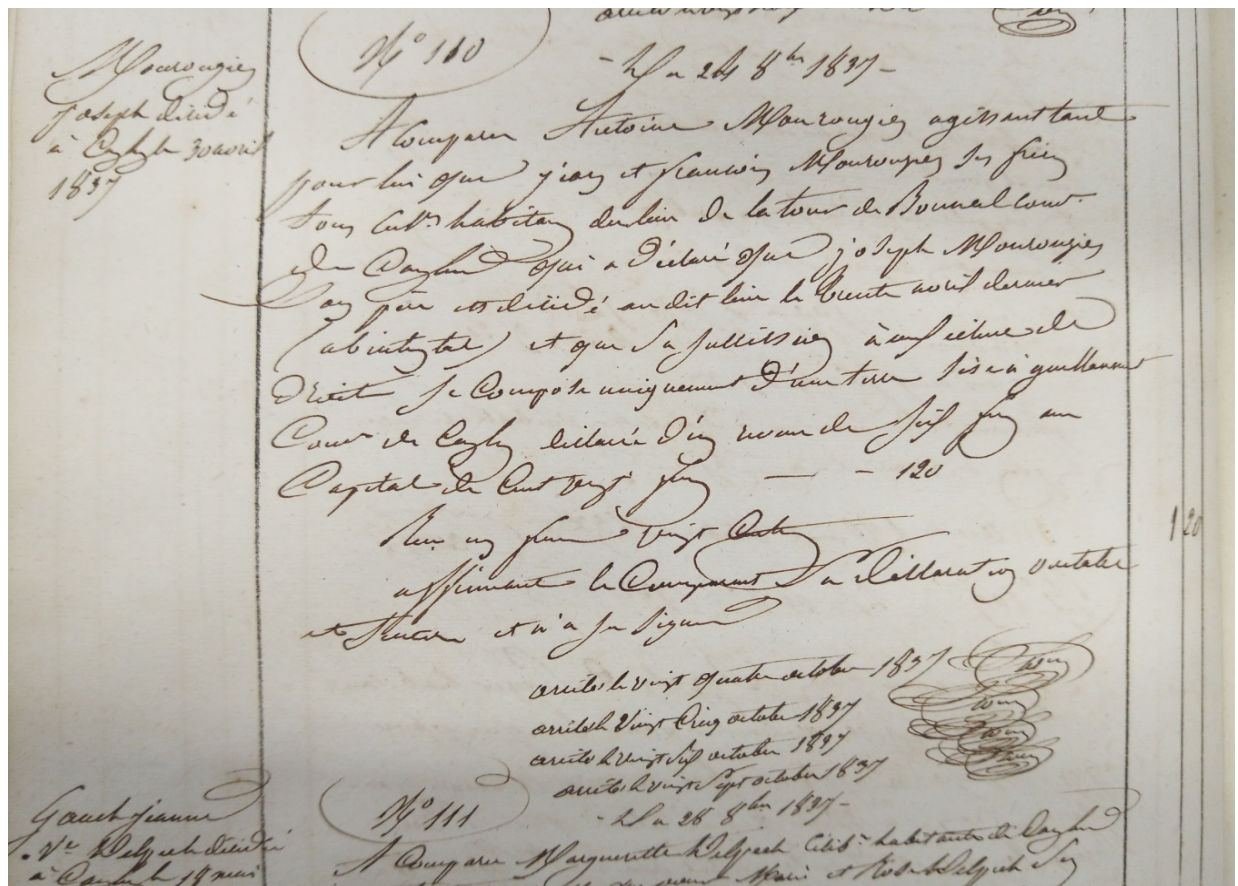 N° 110
- Du 24 8bre 1837 -
Mourougies
joseph décédé
à Caylus 30 avril
1837
A Comparu Antoine Mourougies agissant tant
pour lui que jean et francois Mourougies ses freres
tous cultrs habitans du lieu de la tour de Bonneal comt
de Caylus qui a déclaré que joseph Mourougies
Son père est décédé audit lieu le trente avril dernier
(abintestat) et que Sa Succession
droit Se Compose uniquement d'une terre Sise à
Comt de Caylus déclarée d'un revenu de Six frcs au
Capital de Cent vingt frcs — - 120
Reçu un franc vingt Cent. 1 20
affirmant le Comparant Sa déclaration veritable
et Sincère et n'a Su Signer
arrêté le vingt quatre octobre 1837
arrêté le Vingt Cinq octobre 1837
arrêté le vingt Six octobre 1837
arrêté le vingt Sept octobre 1837
N° 111
- Du 28 8bre 1837 -
Gauch jeanne
Ve Delpech décédée
à Caylus le 18 mai
A Comparu Margueritte Delpech Célibre habitante de Caylus